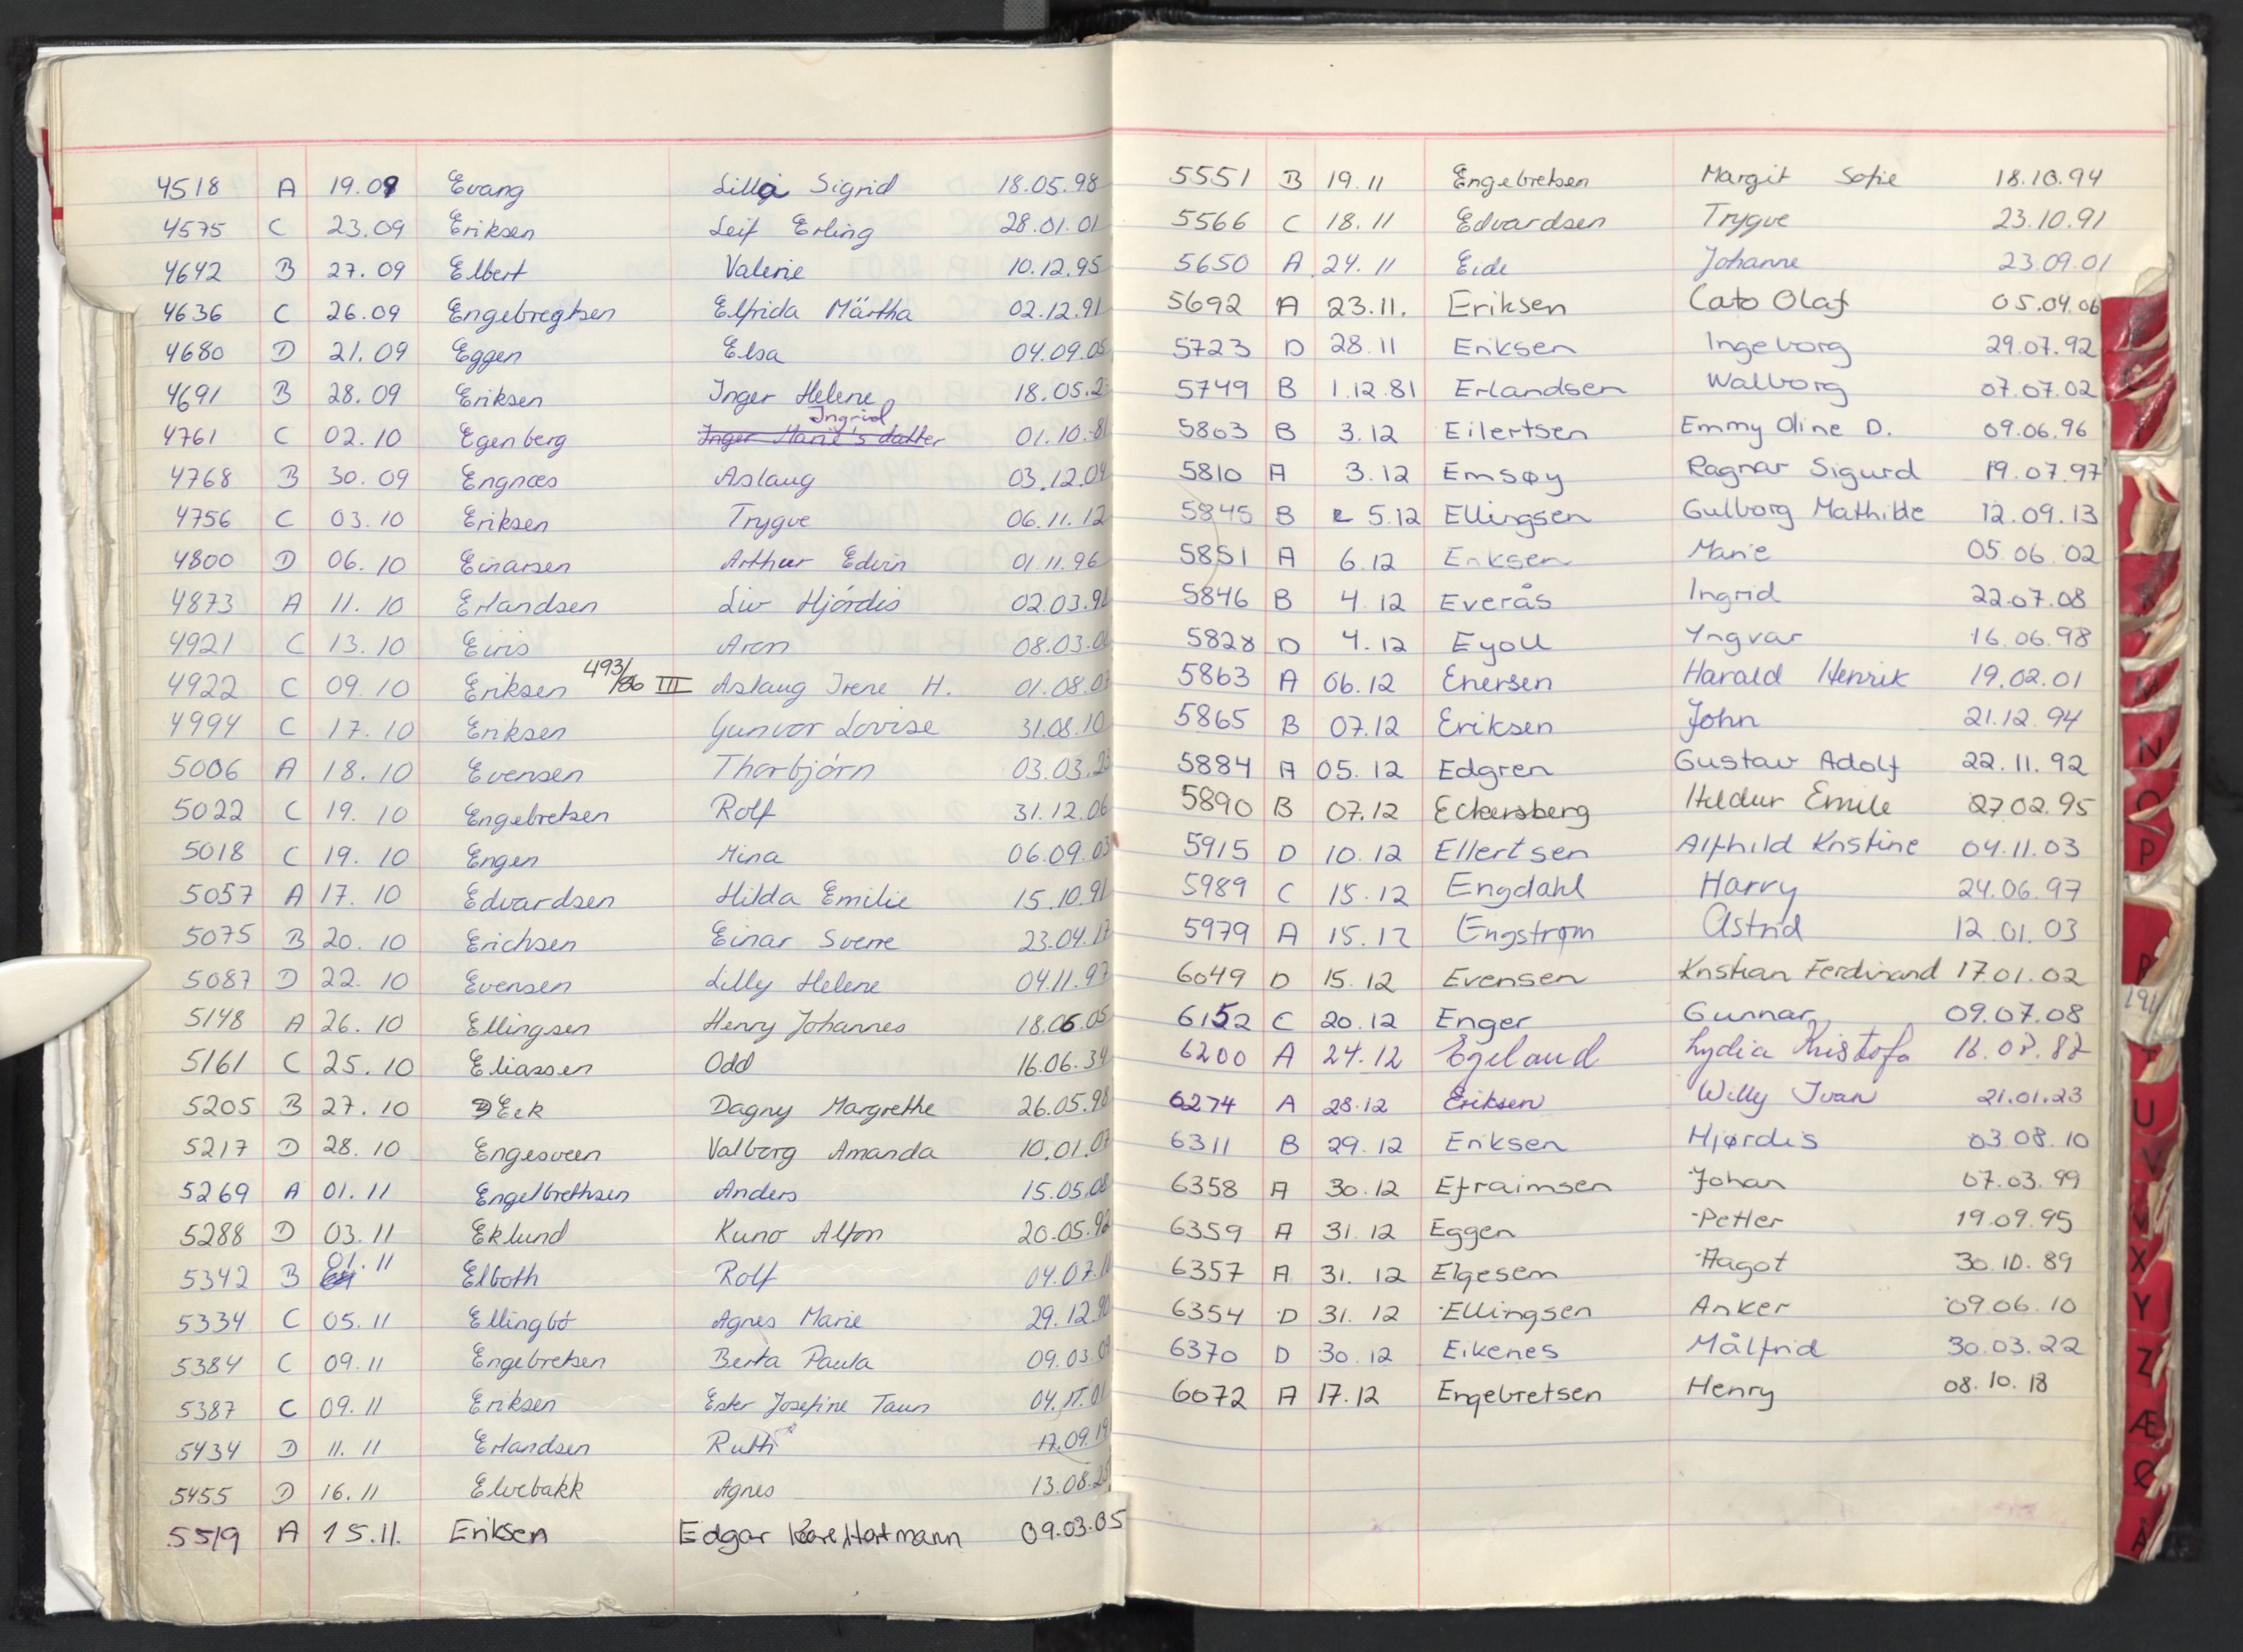 4518 A 19.09 Evang Lilla Sigrid 18.05.98
4575 C 23.09 Eriksen Leif Erling 28.01.01
4642 B 27.09 Elbert Valerie 10.12.95
4636 C 26.09 Engebregtsen Elfrida Märtha 02.12.91
4680 D 21.09 Eggen Elsa 04.09.05
4691 B 28.09 Eriksen Inger Helene 18.05.2
Ingrid
4761 C 02.10 Egenberg Inger Marie's datter 01.10.81
4768 B 30.09 Engnæs Aslaug 03.12.04
4756 C 03.10 Eriksen Trygve 06.11.12
4800 D 06.10 Einarsen Arthur Edvin 01.11.96
4873 A 11.10 Erlandsen Liv Hjórdis 02.03.91
4921 C 13.10 Eiris Aron 08.03.0
4922 C 09.10 Eriksen 493/86 III Aslaug Irene H. 01.08.0
4994 C 17.10 Eriksen Gunvor Lovise 31.08.10
5006 A 18.10 Evensen Thorbjórn 03.03.23
5022 C 19.10 Engebretsen Rolf 31.12.06
5018 C 19.10 Engen Mina 06.09.03
5057 A 17.10 Edvardsen Hilda Emilie 15.10.91
5075 B 20.10 Erichsen Einar Sverre 23.04.17
5087 D 22.10 Evensen Lilly Helene 04.11.97
5148 A 26.10 Ellingsen Henry Johannes 18.06.05
5161 C 25.10 Eliassen Odd 16.06.34
5205 B 27.10 Eek Dagny Margrethe 26.05.98
5217 D 28.10 Engesveen Valborg Amanda 10.01.07
5269 A 01.11 Engelbrethsen Anders 15.05.08
5288 D 03.11 Eklund Kuno Alfon 20.05.92
5342 B 01.11 Elboth Rolf 04.07.11
5334 C 05.11 Ellingbó Agnes Marie 29.12.90
5384 C 09.11 Engebretsen Berta Paula 09.03.09
5387 C 09.11 Eriksen Ester Josefine Taun 04.11.01
5434 D 11.11 Erlandsen Ruth 17.09.19
5455 D 16.11 Elvebakk Agnes 13.08.25
5519 A 15.11. Eriksen Edgar Kåre Hartmann 09.03.05
5551 B 19.11 Engebretsen Margit Sofie 18.10.94
5566 C 18.11 Edvardsen Trygve 23.10.91
5650 A 24.11 Eide Johanne 23.09.01
5692 A 23.11. Eriksen Cato Olaf 05.04.06
5723 D 28.11 Eriksen Ingeborg 29.07.92
5749 B 1.12.81 Erlandsen Walborg 07.07.02
5803 B 3.12 Eilertsen Emmy Oline D. 09.06.96
5810 A 3.12 Emsøy Ragnar Sigurd 19.07.97
5845 B 5.12 Ellingsen Gulborg Mathilde 12.09.13
5851 A 6.12 Eriksen Marie 05.06.02
5846 B 4.12 Everås Ingrid 22.07.08
5828 D 4.12 Eyoll Yngvar 16.06.98
5863 A 06.12 Enersen Harald Henrik 19.02.01
5865 B 07.12 Eriksen John 21.12.94
5884 A 05.12 Edgren Gustav Adolf 22.11.92
5890 B 07.12 Eckersberg Hildur Emile 27.02.95
5915 D 10.12 Ellertsen Alfhild Kristine 04.11.03
5989 C 15.12 Engdahl Harry 24.06.97
5979 A 15.12 Engstrøm Astrid 12.01.03
6049 D 15.12 Evensen Kristian Ferdinand 17.01.02
6152 C 20.12 Enger Gunnar 09.07.08
6200 A 24.12 Egeland Lydia Kristofa
6274 A 28.12 Eriksen Willy Ivan 21.01.23
6311 B 29.12 Eriksen Hjørdis 03.08.10
6358 A 30.12 Efraimsen Johan 07.03.99
6359 A 31.12 Eggen Petter 19.09.95
6357 A 31.12 Elgesem Aagot 30.10.89
6354 D 31.12 Ellingsen Anker 09.06.10
6370 D 30.12 Eikenes Målfrid 30.03.22
6072 A 17.12 Engebretsen Henry 08.10.18
N
O
P
R
U
V
X
Y
Z
Æ
Ø
Å